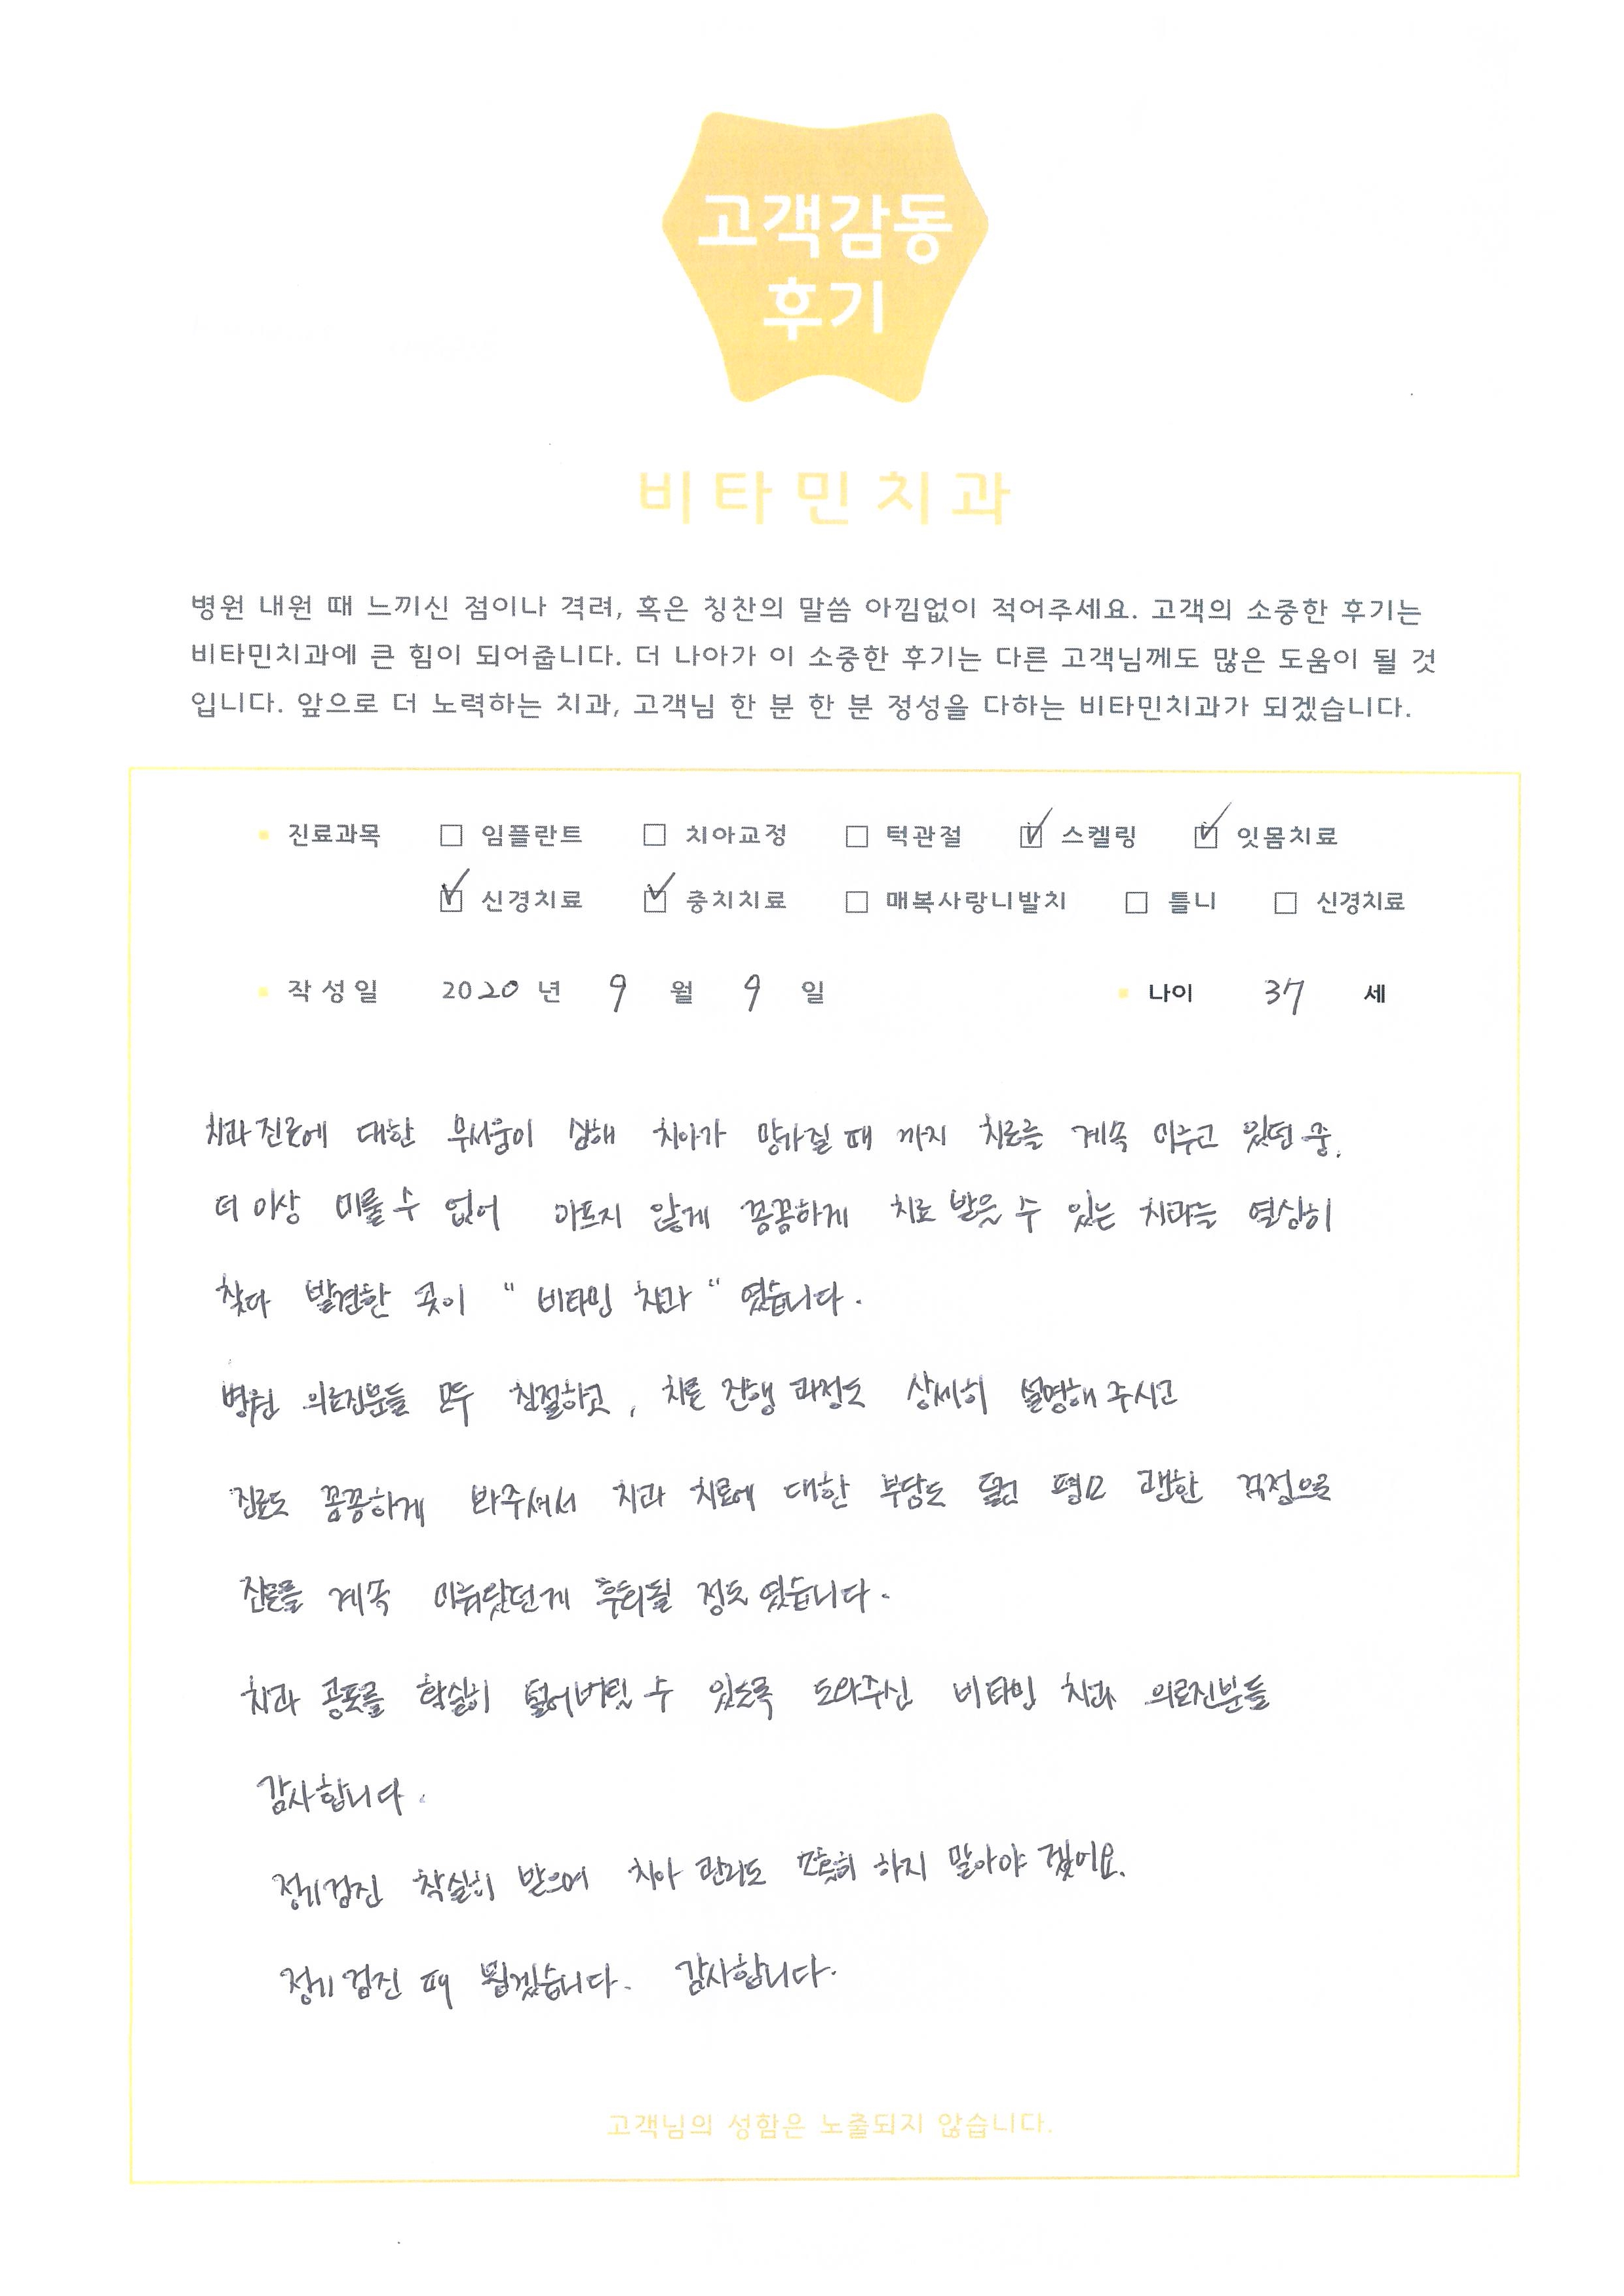 고객감동
후기
비타민치과
병원 내원 때 느끼신 점이나 격려, 혹은 칭찬의 말씀 아낌없이 적어주세요. 고객의 소중한 후기는
비타민치과에 큰 힘이 되어줍니다. 더 나아가 이 소중한 후기는 다른 고객님께도 많은 도움이 될 것
입니다. 앞으로 더 노력하는 치과, 고객님 한 분 한 분 정성을 다하는 비타민치과가 되겠습니다.
진료과목 임플란트 치아교정 턱관절 스켈링 잇몸치료
신경치료 충치치료 매복사랑니발치 틀니 신경치료
작성일 2020 년 9 월 9 일 나이 37 세
치과진료에 대한 무서움이 심해 치아가 망가질 때 까지 치료를 계속 미루고 있던 중,
더 이상 미룰 수 없어 아프지 않게 꼼꼼하게 치료 받을 수 있는 치과를 열심히
찾다 발견한 곳이 " 비타민 치과 " 였습니다.
병원 의료진분들 모두 친절하고, 치료 진행 과정도 상세히 설명해 주시고
진료도 꼼꼼하게 봐주셔서 치과 치료에 대한 부담도 괜한 걱정으로
진료를 계속 미뤄왔던게 후회될 정도 였습니다.
치과 공포를 확실히 털어버릴 수 있도록 도와주신 비타민 치과 의료진분들
감사합니다.
정기검진 착실히 받으며 치아 관리도 소홀히 하지 말아야 겠어요.
정기 검진 때 뵙겠습니다. 감사합니다.
고객님의 성함은 노출되지 않습니다.